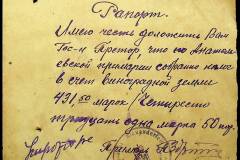 Рапорт.
Имею честь доложить Вам
Гос-н Претор, что из Анатоль
евской примарии собрано налог
в счет виноградной земли
431,50 марок (Четыреста
тридцать одна марка 50 пф.